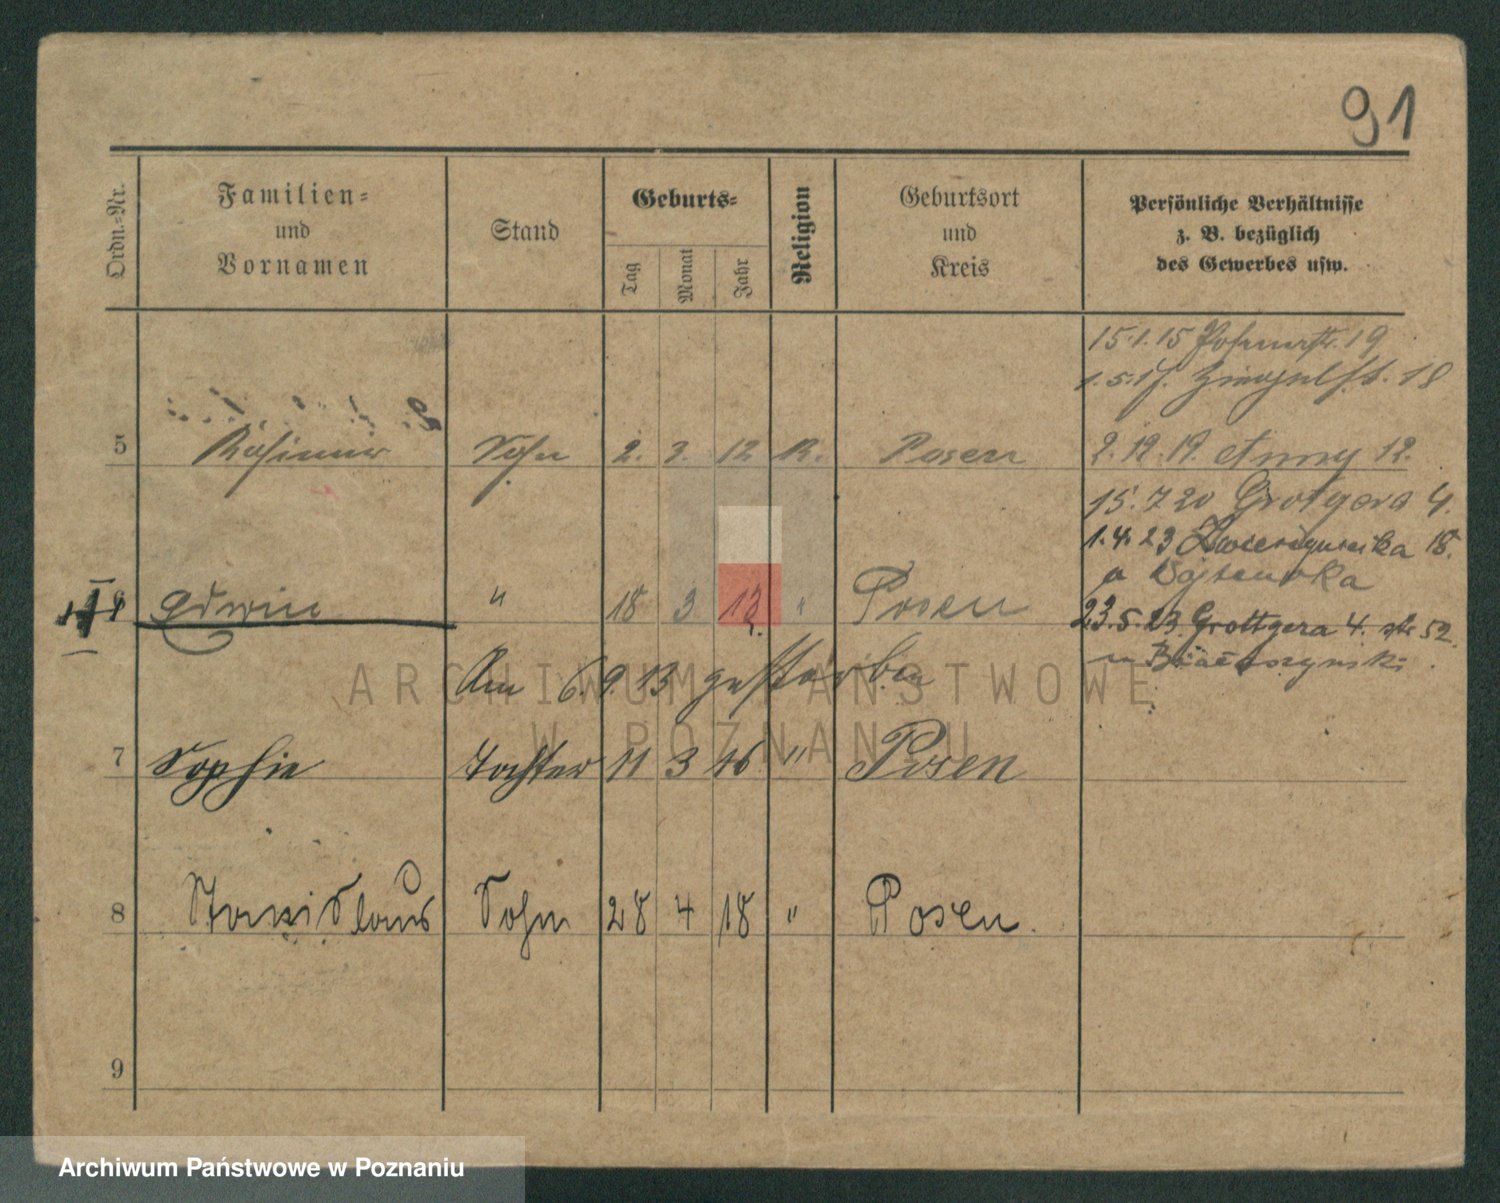 91
Ordn.-Nr.
Familien-
und
Vornamen
Stand
Geburts-
Tag
Monat
Jahr
Religion
Geburtsort
und
Kreis
Persönliche Verhältnisse
z. B. bezüglich
des Gewerbes usw.
15.1.15 19
1.5.17. 18
5 Kasimir Sohn 2. 3. 12 R. Posen 2.12.19. 12.
15.7 20 Grotgera 4.
1.4.23 Zwierzyniecka 18.
6 Edwin " 18 3 13 " Posen
23.5.23. Grottgera 4. 52
Am 6.9.13 gestorben
7 Sophie Tochter 11 3 16 " Posen
8 Stanislaus Sohn 28 4 18 " Posen.
9
ARCHIWUM PAŃSTWOWE
W POZNANIU
Archiwum Państwowe w Poznaniu